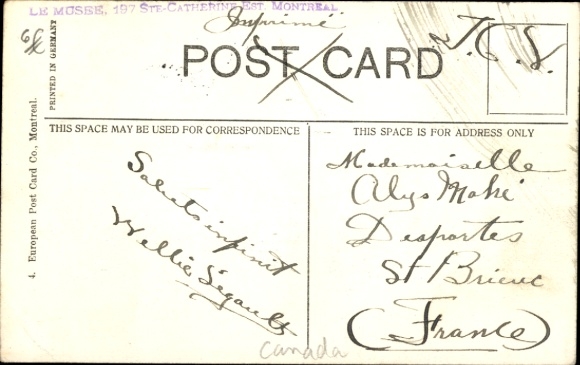 LE MUSEE, 197 STE-CATHERINE EST. MONTREAL
Imprimé
T.C.V.
POST CARD
PRINTED IN GERMANY
4. European Post Card Co., Montreal.
THIS SPACE MAY BE USED FOR CORRESPONDENCE
Saluts infinit
Ségault
THIS SPACE IS FOR ADDRESS ONLY
Mademoiselle
Alys Mahé
Desportes
St Brieuc
(France)
Canada